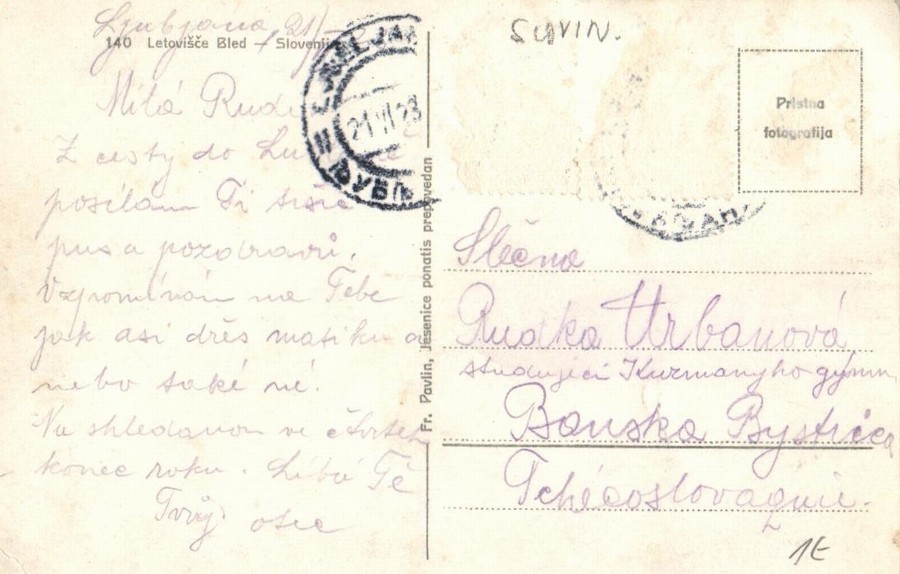 Ljubljana 21/
140 Letovišče Bled – Slovenija
Milá Rudi
Z cesty do
posílám Ti tisíc
pus a pozdravů,
Vzpomínám na Tebe
jak asi dřeš matiku a
nebo také né.
Na shledanou ve čtvrtek
konec roku. Líbá Tě
Tvůj otec
21 VI 23
Fr. Pavlin, Jesenice ponatis prepovedan
SLOVIN.
Pristna
fotografija
Slečna
Rudka Urbanová
studující Kuzmanyho gymn.
Banska Bystrica
Tchécoslovaquie.
1E